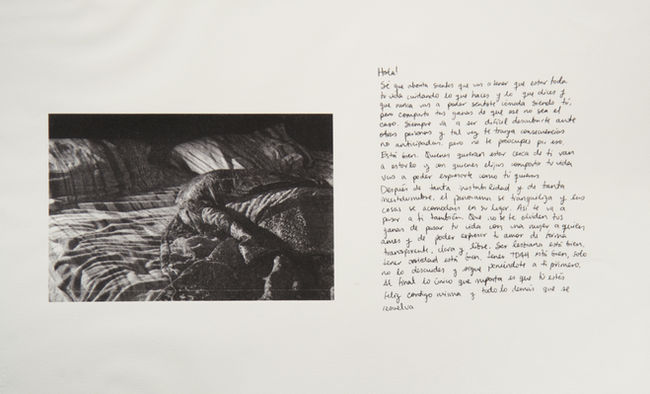 Hola!
Sé que ahorita sientes que vas a tener que estar toda
tu vida cuidando lo que haces y lo que dices y
que nunca vas a poder sentirte cómoda siendo tú,
pero comparto tus ganas de que ese no sea el
caso. Siempre va a ser difícil descubrirte ante
otras personas y tal vez te traiga consecuencias
no anticipadas, pero no te preocupes por eso.
Está bien. Quienes quieran estar cerca de ti van
a estarlo y con quienes elijas compartir tu vida
vas a poder expresarte como tú quieras.
Después de tanta inestabilidad y de tanta
incertidumbre, el panorama se tranquiliza y las
cosas se acomodan en su lugar. Así te va a
pasar a ti también. Que no se te olviden tus
ganas de pasar tu vida con una mujer a quien
ames y de poder expresar tu amor de forma
transparente, clara y libre. Ser lesbiana está bien,
tener ansiedad está bien, tener TDAH está bien, solo
no lo descuides y sigue poniéndote a ti primero.
Al final lo único que importa es que tú estés
feliz contigo misma y todo lo demás que se
resuelva